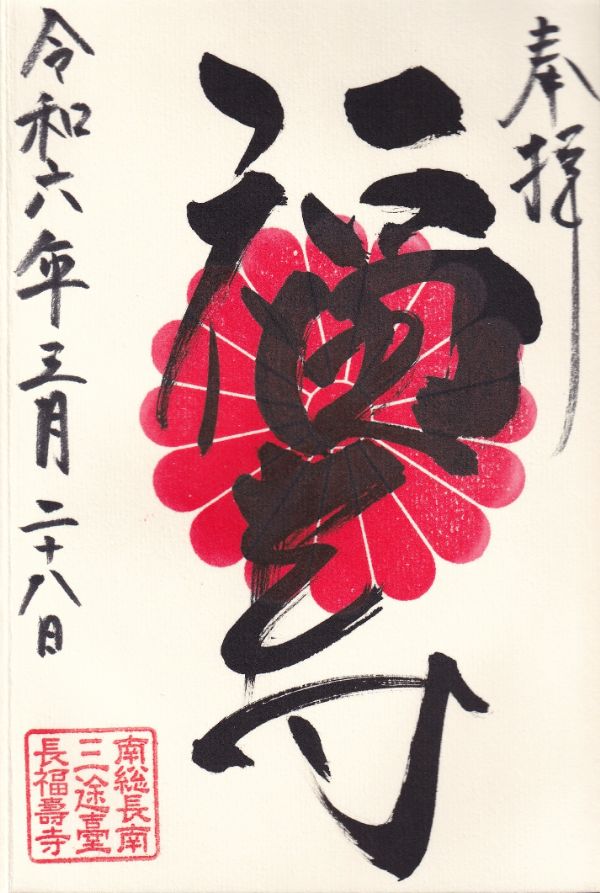 奉拝
福壽
令和六年三月二十八日
南総長南
三途臺
長福壽寺